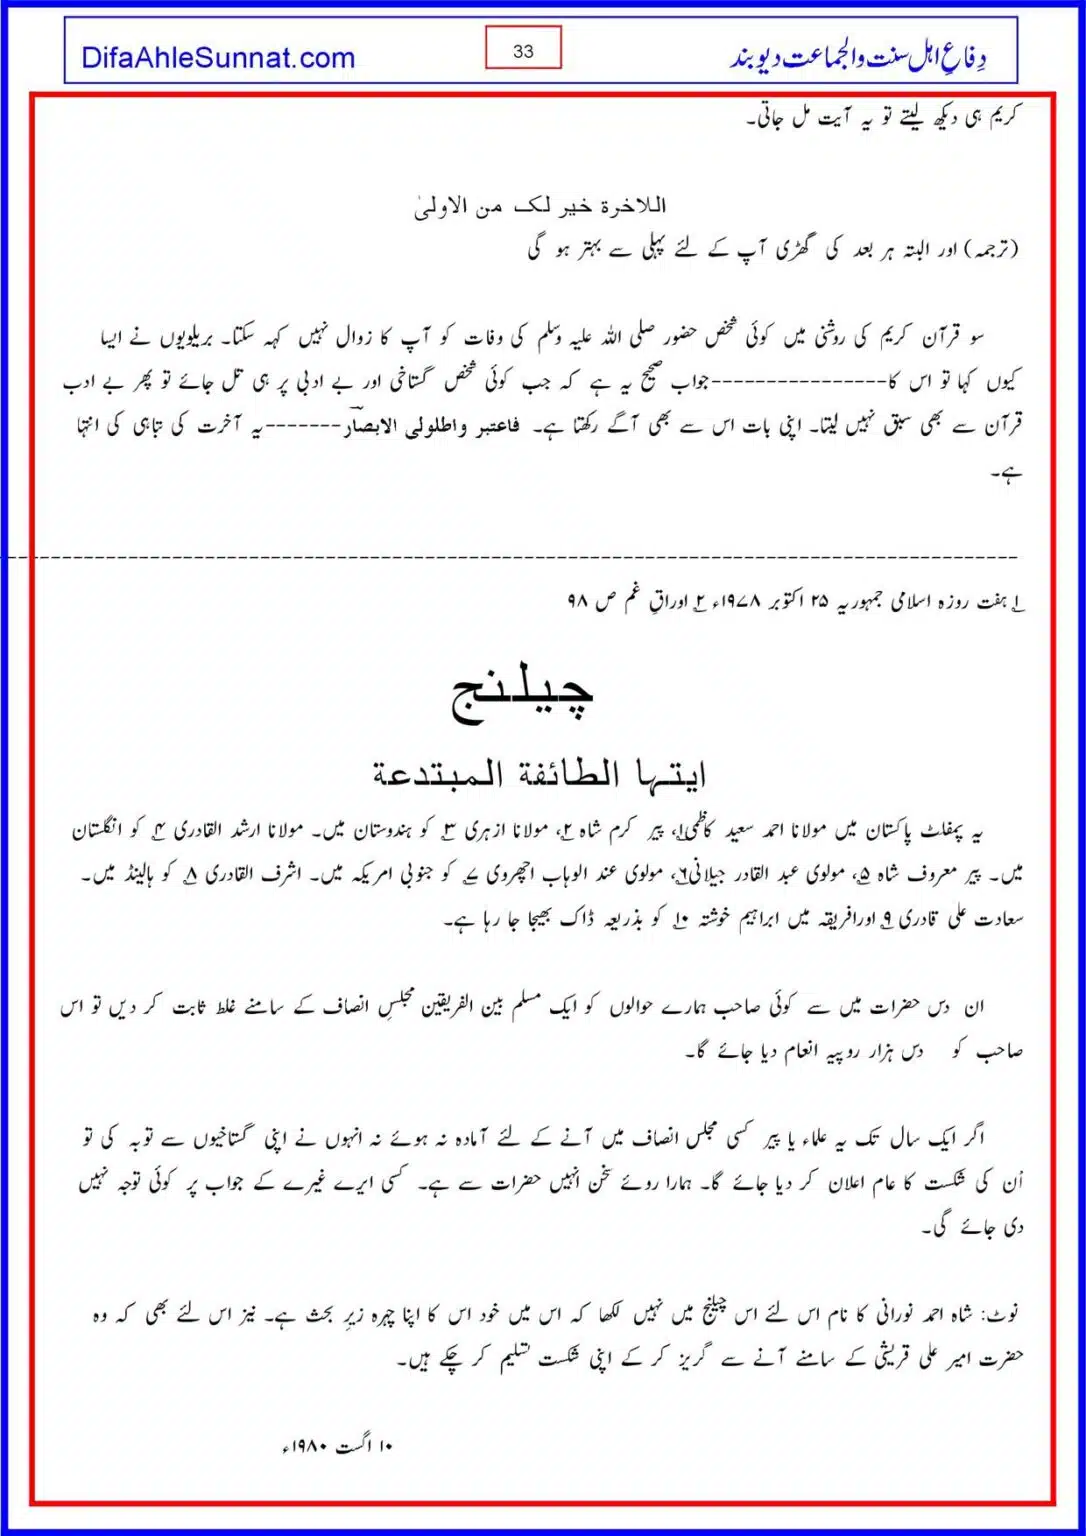 DifaAhleSunnat.com
33
دِفاعِ اہل سنت والجماعت دیوبند
کریم ہی دیکھ لیتے تو یہ آیت مل جاتی۔
اللاخرة خیر لک من الاولیٰ
(ترجمہ) اور البتہ ہر بعد کی گھڑی آپ کے لئے پہلی سے بہتر ہو گی
سو قرآن کریم کی روشنی میں کوئی شخص حضور صلی اللہ علیہ وسلم کی وفات کو آپ کا زوال نہیں کہہ سکتا۔ بریلویوں نے ایسا
کیوں کہا تو اس کا----------------جواب صحیح یہ ہے کہ جب کوئی شخص گستاخی اور بے ادبی پر ہی تل جائے تو پھر بے ادب
قرآن سے بھی سبق نہیں لیتا۔ اپنی بات اس سے بھی آگے رکھتا ہے۔ فاعتبر واطلولی الابصار-------یہ آخرت کی تباہی کی انتہا
ہے۔
------------------------------------------------------------------------------------------
۱؎ ہفت روزہ اسلامی جمہوریہ ۲۵ اکتوبر ۱۹۷۸ء ۲؎ اوراقِ غم ص ۹۸
چیلنج
ایتہا الطائفة المبتدعة
یہ پمفلٹ پاکستان میں مولانا احمد سعید کاظمی۱؎، پیر کرم شاہ ۲؎، مولانا ازہری ۳؎ کو ہندوستان میں۔ مولانا ارشد القادری ۴؎ کو انگلستان
میں۔ پیر معروف شاہ ۵؎، مولوی عبد القادر جیلانی۶؎، مولوی عند الوہاب اچھروی ۷؎ کو جنوبی امریکہ میں۔ اشرف القادری ۸؎ کو ہالینڈ میں۔
سعادت علی قادری ۹؎ اورافریقہ میں ابراہیم خوشتہ ۱۰؎ کو بذریعہ ڈاک بھیجا جا رہا ہے۔
ان دس حضرات میں سے کوئی صاحب ہمارے حوالوں کو ایک مسلم بین الفریقین مجلسِ انصاف کے سامنے غلط ثابت کر دیں تو اس
صاحب کو دس ہزار روپیہ انعام دیا جائے گا۔
اگر ایک سال تک یہ علماء یا پیر کسی مجلس انصاف میں آنے کے لئے آمادہ نہ ہوئے نہ انہوں نے اپنی گستاخیوں سے توبہ کی تو
اُن کی شکست کا عام اعلان کر دیا جائے گا۔ ہمارا روئے سخن انہیں حضرات سے ہے۔ کسی ایرے غیرے کے جواب پر کوئی توجہ نہیں
دی جائے گی۔
نوٹ: شاہ احمد نورانی کا نام اس لئے اس چیلنج میں نہیں لکھا کہ اس میں خود اس کا اپنا چہرہ زیرِ بحث ہے۔ نیز اس لئے بھی کہ وہ
حضرت امیر علی قریشی کے سامنے آنے سے گریز کر کے اپنی شکست تسلیم کر چکے ہیں۔
۱۰ اگست ۱۹۸۰ء